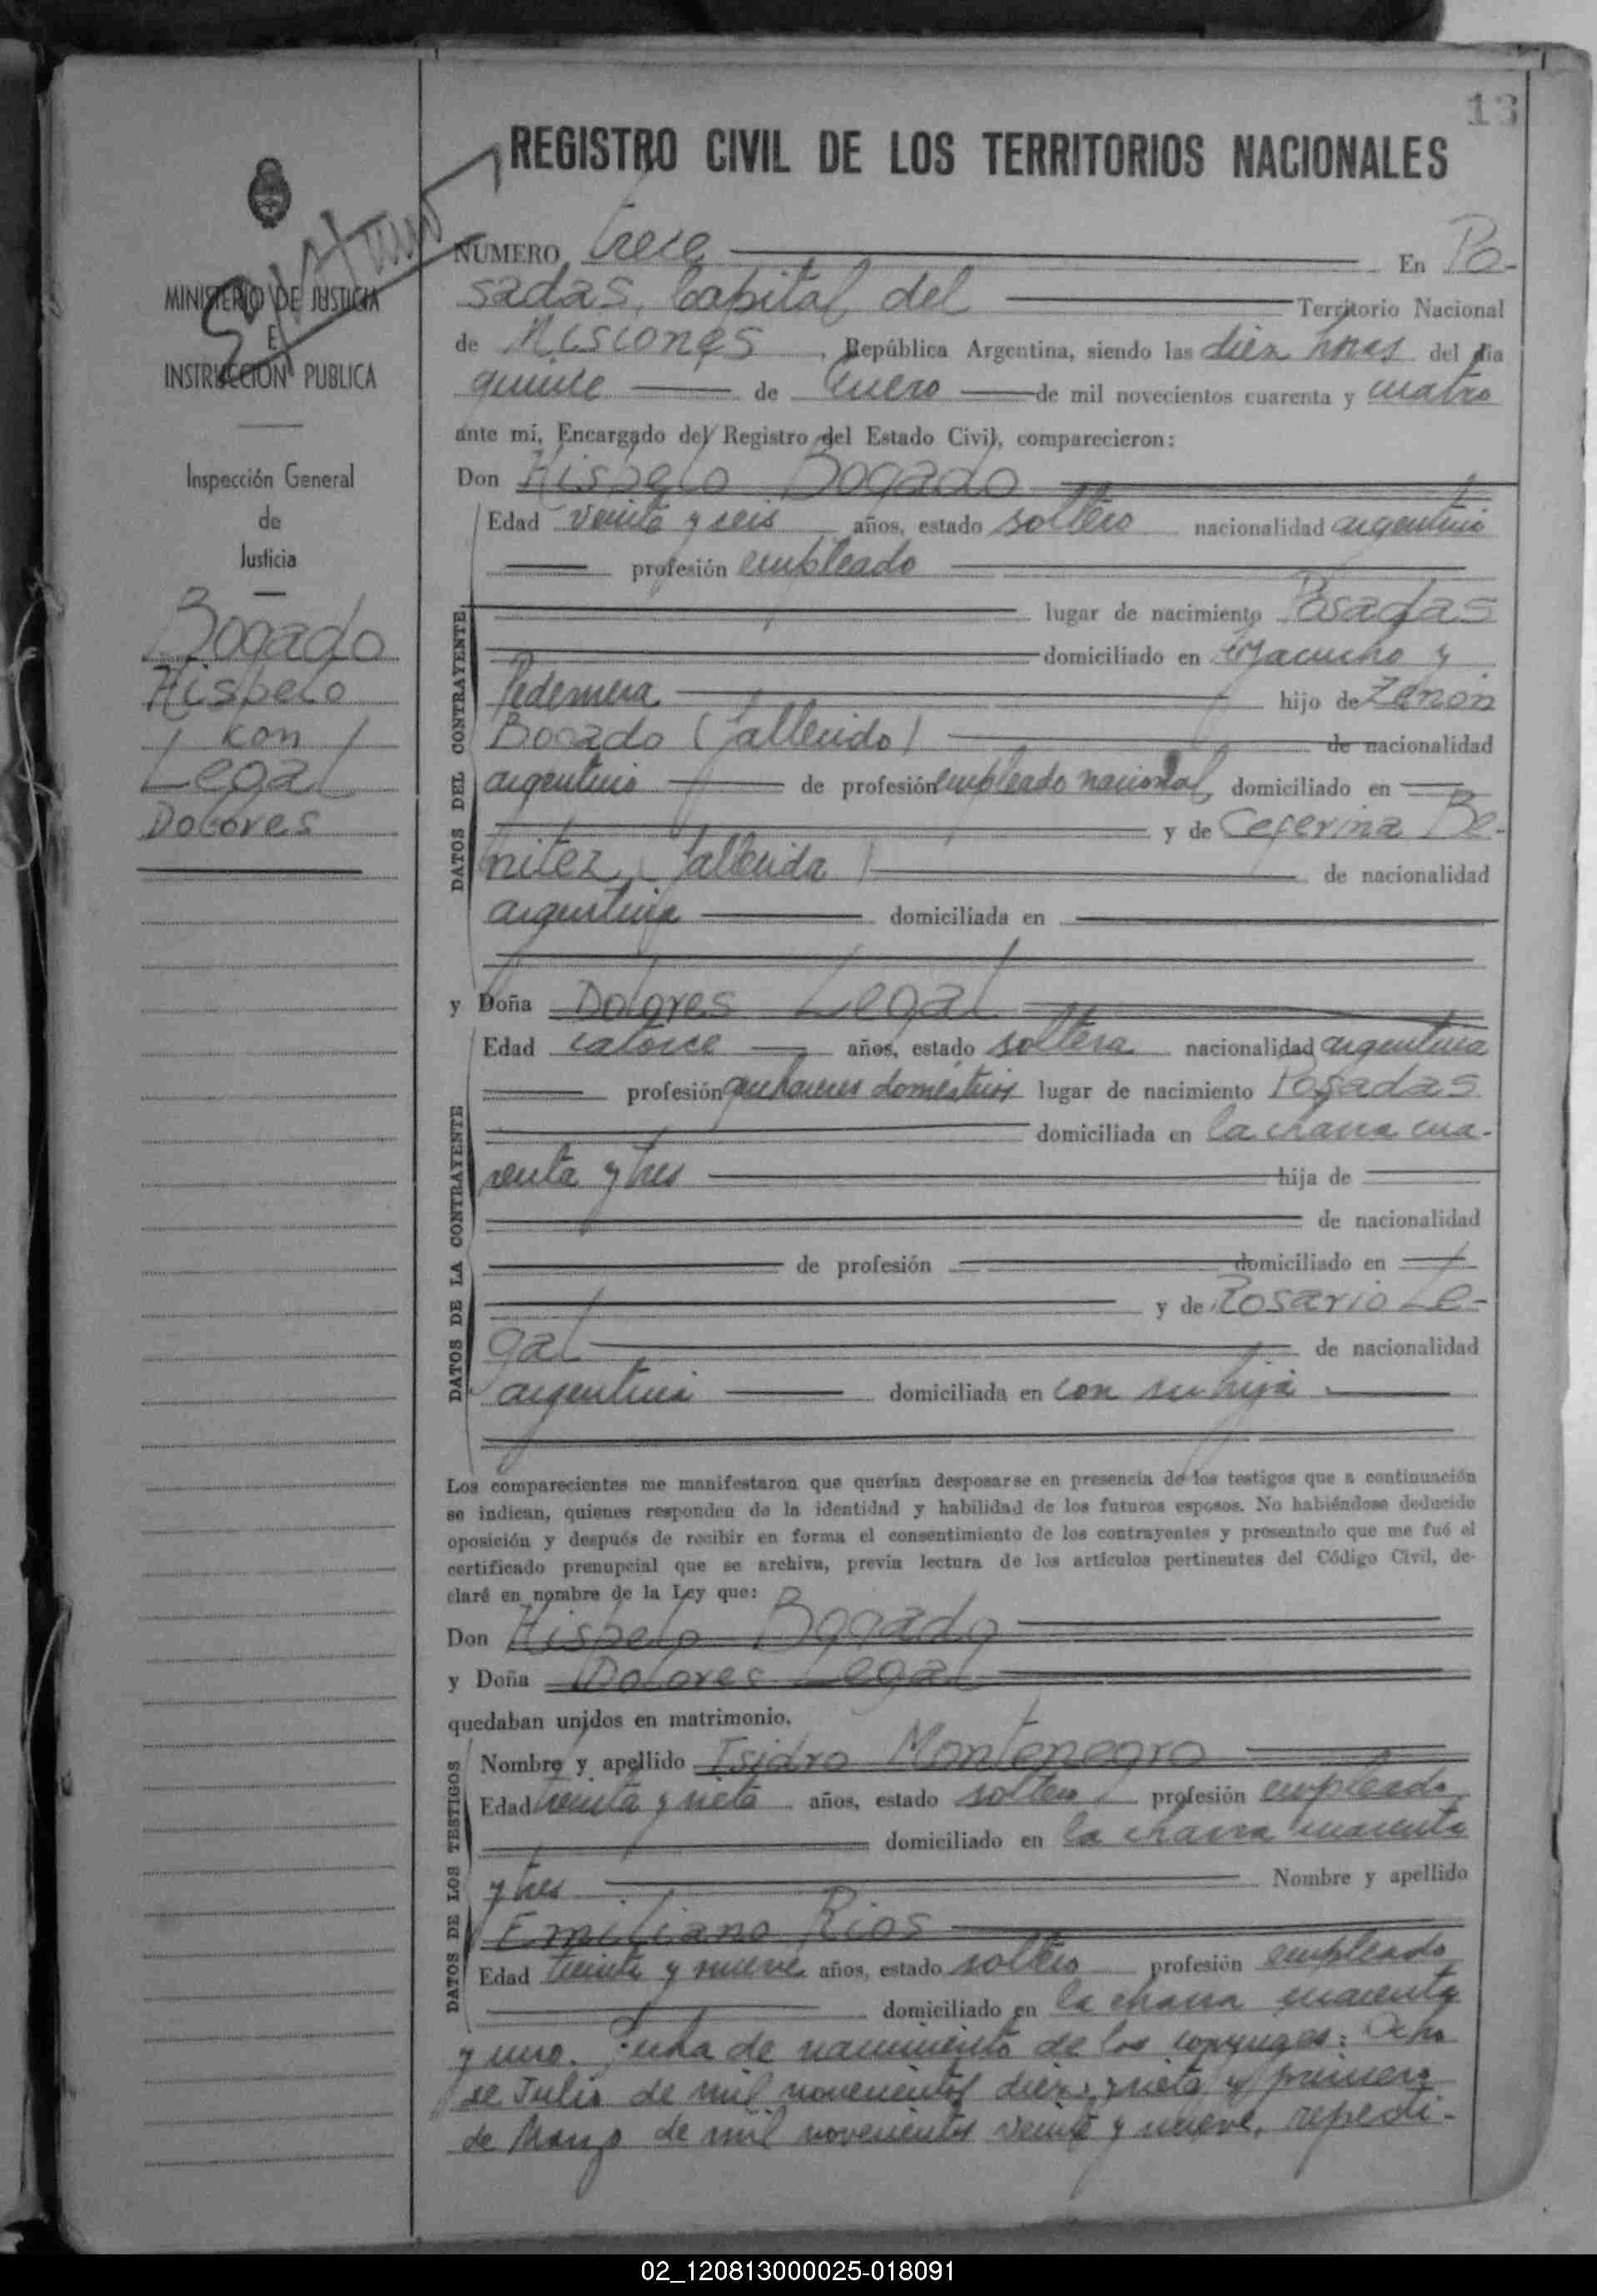 13
REGISTRO CIVIL DE LOS TERRITORIOS NACIONALES
MINISTERIO DE JUSTICIA
E
INSTRUCCION PUBLICA
Inspección General
de
Justicia
Bogado
Hispelo
kon
Legal
Dolores
NUMERO Trece En Po-
sadas, Capital del Territorio Nacional
de Misiones, República Argentina, siendo las diez horas del día
quince de Enero de mil novecientos cuarenta y cuatro
ante mí, Encargado del Registro del Estado Civil, comparecieron:
Don Hispelo Bogado
Edad veinte y seis años, estado soltero nacionalidad argentino
profesión empleado
lugar de nacimiento Posadas
domiciliado en Ayacucho y
Pedernera hijo de Zenón
Bogado (fallecido) de nacionalidad
argentino de profesión empleado nacional, domiciliado en
y de Ceferina Be-
nitez (fallecida) de nacionalidad
argentina domiciliada en
y Doña Dolores Legal
Edad catorce años, estado soltera nacionalidad argentina
profesión quehaceres domésticos lugar de nacimiento Posadas
domiciliada en la chacra cua-
renta y tres hija de
de nacionalidad
de profesión domiciliado en
y de Rosario Le-
gal de nacionalidad
argentina domiciliada en con su hija
DATOS DEL CONTRAYENTE
DATOS DE LA CONTRAYENTE
Los comparecientes me manifestaron que querían desposarse en presencia de los testigos que a continuación
se indican, quienes responden de la identidad y habilidad de los futuros esposos. No habiéndose deducido
oposición y después de recibir en forma el consentimiento de los contrayentes y presentado que me fué el
certificado prenupcial que se archiva, previa lectura de los artículos pertinentes del Código Civil, de-
claré en nombre de la Ley que:
Don Hispelo Bogado
y Doña Dolores Legal
quedaban unidos en matrimonio.
DATOS DE LOS TESTIGOS
Nombre y apellido Isidro Montenegro
Edad treinta y siete años, estado soltero profesión empleado
domiciliado en la chacra cuarenta
y tres Nombre y apellido
Emiliano Rios
Edad treinta y nueve años, estado soltero profesión empleado
domiciliado en la chacra cuarenta
y uno. Fecha de nacimiento de los conyuges: Ocho
de Julio de mil novecientos diez y siete y primero
de Marzo de mil novecientos veinte y nueve, repecti-
02_120813000025-018091